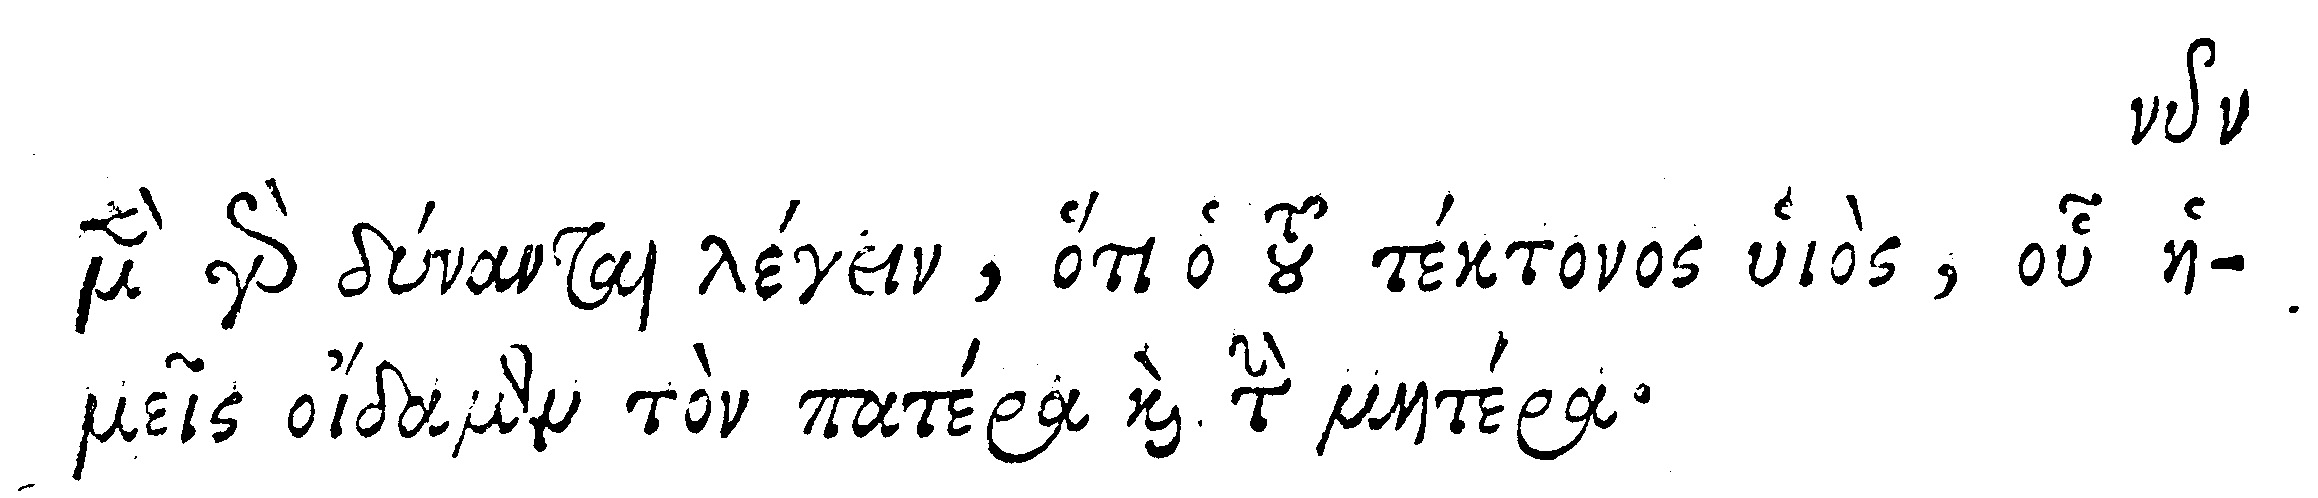 νῦν
μὲν γὰρ δύνανται λέγειν, ὅτι ὁ τοῦ τέκτονος υἱὸς, οὗ ἡ-
μεῖς οἴδαμεν τὸν πατέρα καὶ τὴν μητέρα·